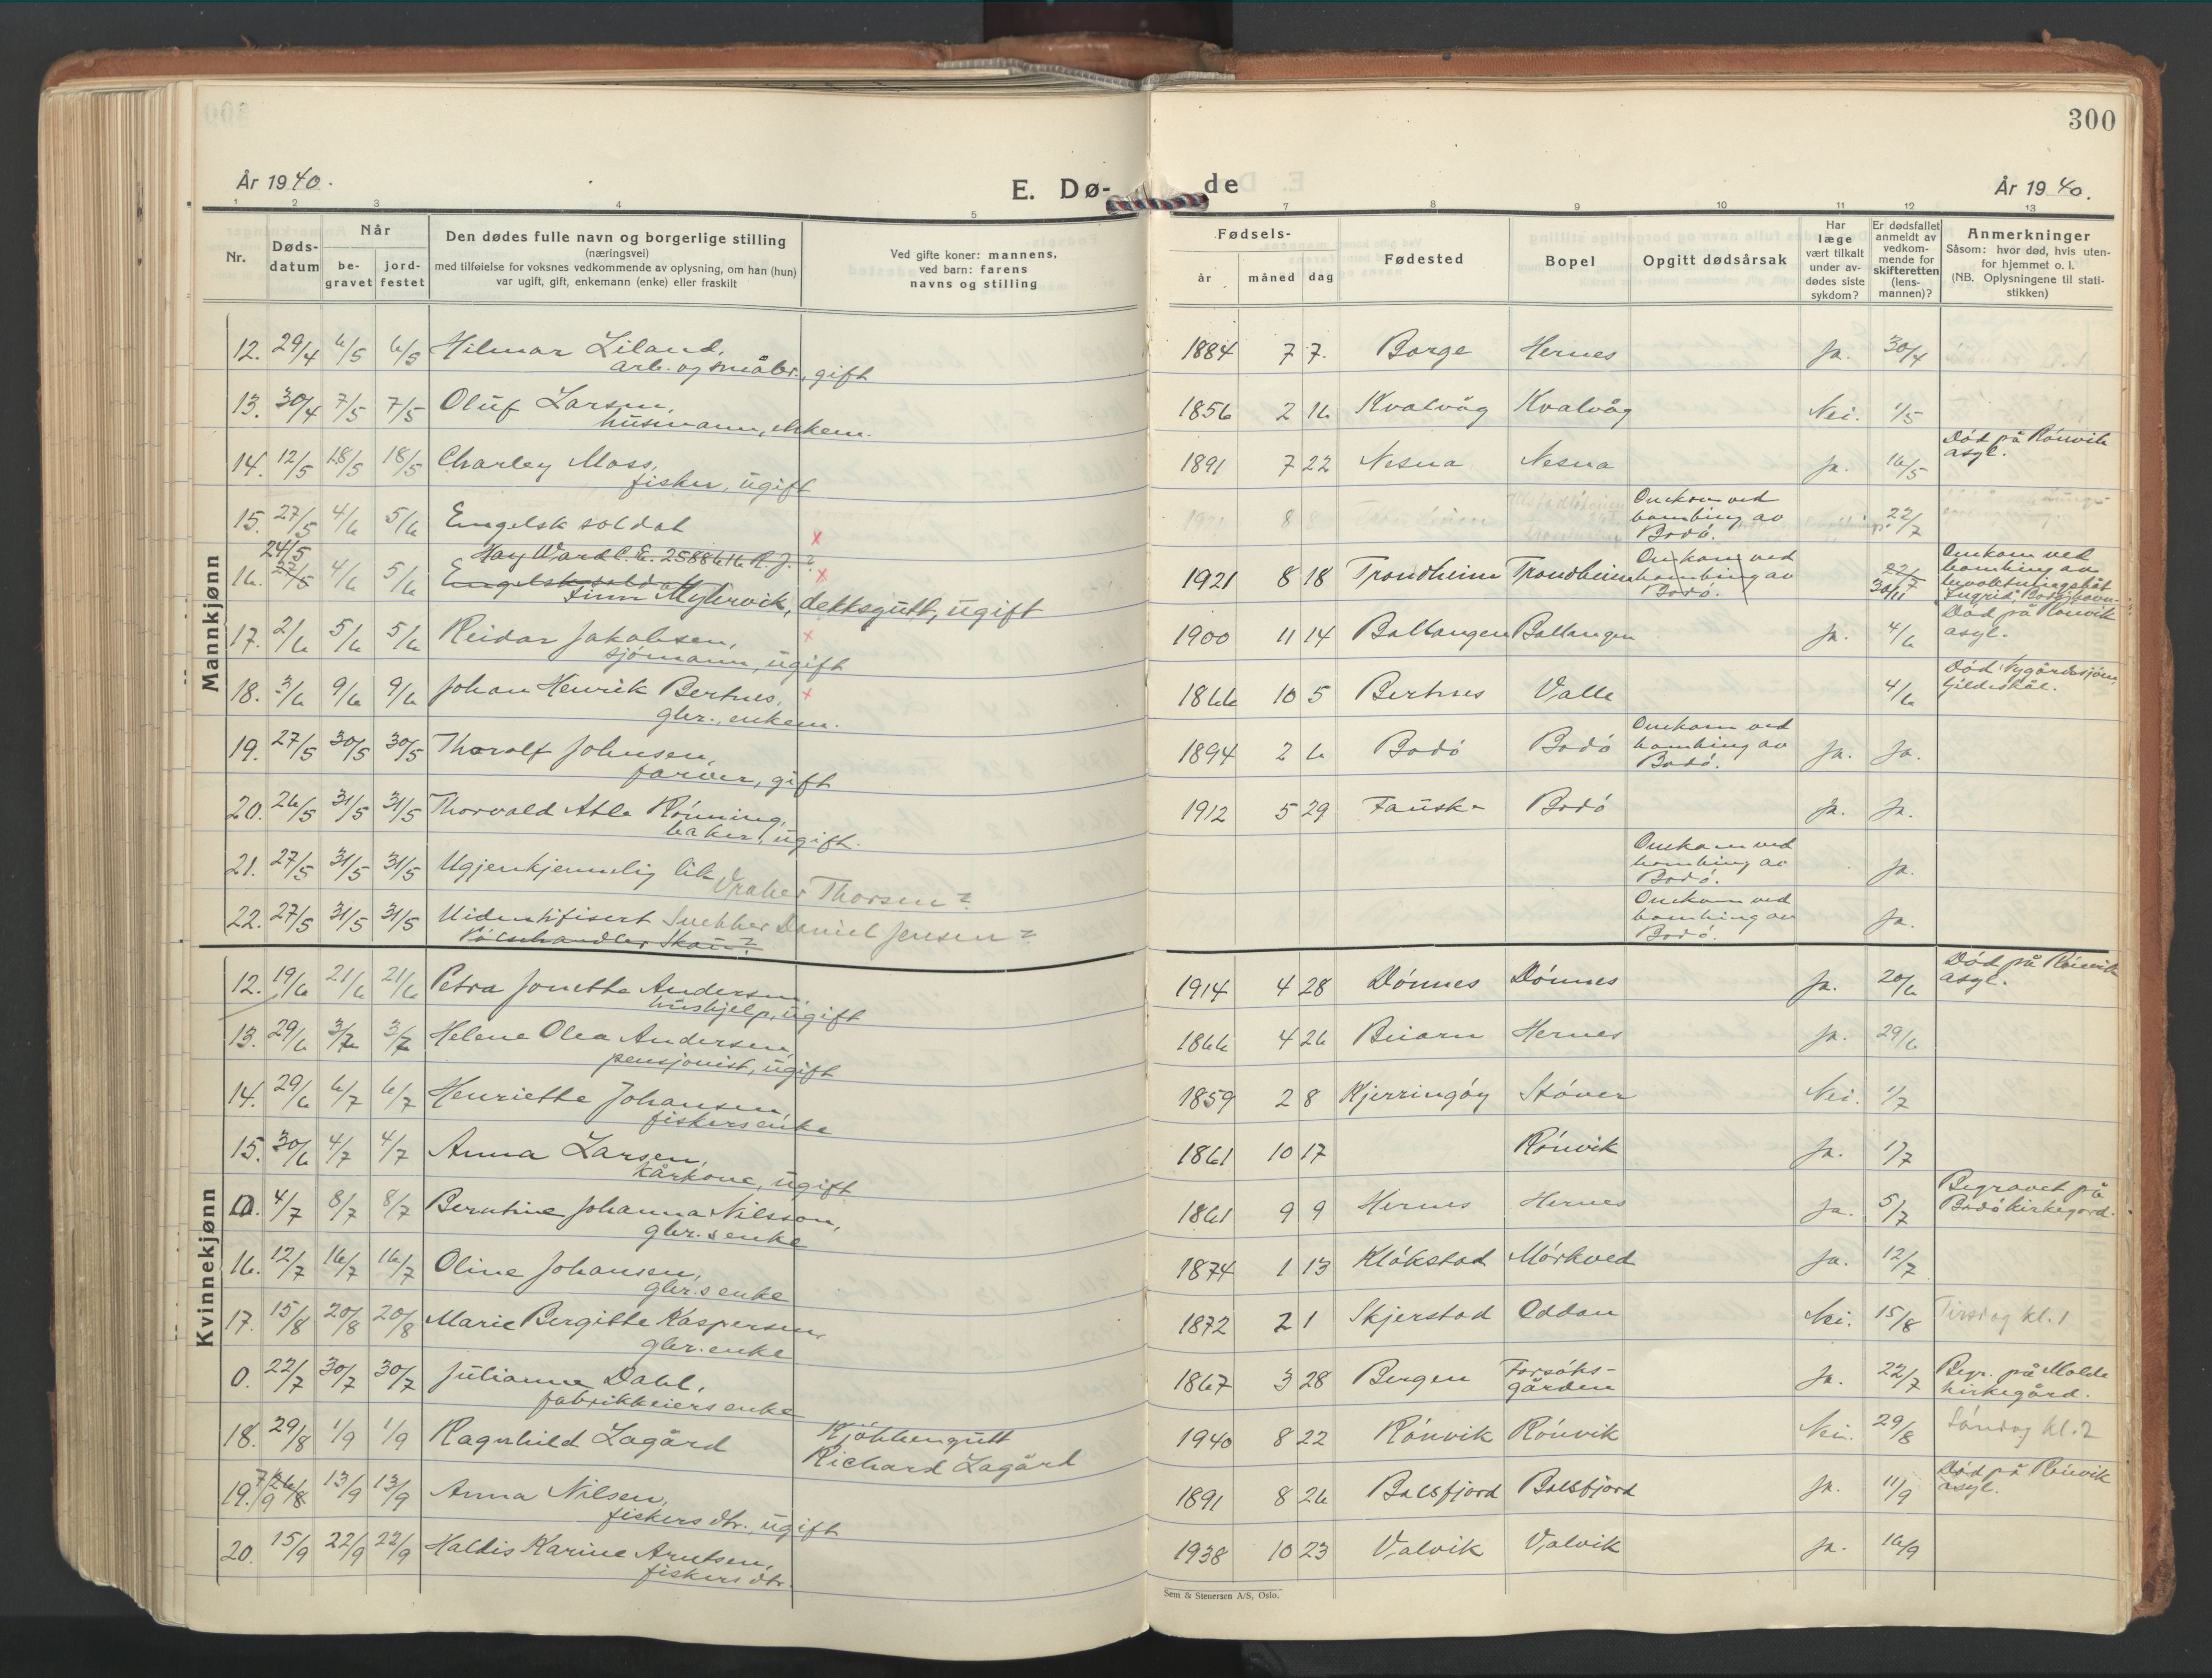 300
År 1940.
E. Dø-
de
År 1940.
1 2 3 4 5 7 8 9 10 11 12 13
Nr.
Døds-
datum
Når
be-
gravet
jord-
festet
Den dødes fulle navn og borgerlige stilling
(næringsvei)
med tilføielse for voksnes vedkommende av oplysning, om han (hun)
var ugift, gift, enkemann (enke) eller fraskilt
Ved gifte koner: mannens,
ved barn: farens
navns og stilling
Fødsels-
år måned dag
Fødested
Bopel
Opgitt dødsårsak
Har
læge
vært tilkalt
under av-
dødes siste
sykdom?
Er dødsfallet
anmeldt av
vedkom-
mende for
skifteretten
(lens-
mannen)?
Anmerkninger
Såsom: hvor død, hvis uten-
for hjemmet o. l.
(NB. Oplysningene til stati-
stikken)
Mannkjønn
12. 29/4 6/5 6/5 Hilmar Liland, 1884 7 7. Borge Hernes Ja. 30/4
arb. og småbr., gift
13. 30/4 7/5 7/5 Oluf Larsen, 1856 2 16 Kvalvåg Kvalvåg Nei. 1/5
husmann, enkem.
14. 12/5 18/5 18/5 Charley Moss, 1891 7 22 Nesna Nesna Ja. 16/5 Død på Rönvik
fisker, ugift asyl.
15. 27/5 4/6 5/6 Engelsk soldat x Omkom ved
bombing av
Bodö. 22/7
Hay Ward C. E. 2588616 R. J. ?
16. 24/5 27/5 4/6 5/6 Engelsk soldat x 1921 8 18 Trondheim Trondheim Omkom ved
bombing av
Bodö. 22/7 30/11 Omkom ved
bombing av
bevoktningsbåt
"Ingrid" Bodö havn
Finn Myhrvik, dekksgutt, ugift
17. 2/6 5/6 5/6 Reidar Jakobsen, x 1900 11 14 Ballangen Ballangen Ja. 4/6 Död på Rönvik
sjömann, ugift asyl.
18. 3/6 9/6 9/6 Johan Henrik Bertnes, x 1866 10 5 Bertnes Valle 4/6 Död Nygårdsjöen,
gbr., enkem. Gildeskål.
19. 27/5 30/5 30/5 Thoralf Johnsen, 1894 2 6 Bodö Bodö Omkom ved
bombing av
Bodö. Ja. Ja.
farver, gift
20. 26/5 31/5 31/5 Thorvald Atle Rönning, 1912 5 29 Fauske Bodö Ja. Ja.
baker, ugift.
21. 27/5 31/5 31/5 Ugjenkjennelig lik Thorsen? Omkom ved
bombing av
Bodö. Ja.
22. 27/5 31/5 31/5 Uidentifisert Snekker Daniel Jensen? Omkom ved
bombing av
Bodö. Ja.
Pölsehandler Skau?
Kvinnekjønn
12. 19/6 21/6 21/6 Petra Jonette Andersen, 1914 4 28 Dönnes Dönnes Ja. 20/6 Död på Rönvik
hushjelp, ugift asyl.
13. 29/6 3/7 3/7 Helene Olea Andersen, 1866 4 26 Beiarn Hernes Ja. 29/6
pensjonist, ugift
14. 29/6 6/7 6/7 Henriette Johansen, 1859 2 8 Kjerringöy Stöver Nei. 1/7
fiskers enke
15. 30/6 4/7 4/7 Anna Larsen, 1861 10 17 Rönvik Ja. 1/7
kårkone, ugift
0. 4/7 8/7 8/7 Berntine Johanna Nilsson, 1861 9 9 Hernes Hernes Ja. 5/7 Begravet på
gbr.s enke Bodö kirkegård.
16. 12/7 16/7 16/7 Oline Johansen, 1874 1 13 Klökstad Mörkved Ja. 12/7
gbr.s enke
17. 15/8 20/8 20/8 Marie Bergitte Kaspersen, 1872 2 1 Skjerstad Oddan Nei. 15/8 Tirsdag kl. 1
gbr. enke
0. 22/7 30/7 30/7 Julianne Dahl, 1867 3 28 Bergen Forsöks-
gården Ja. 22/7 Begr. på Molde
fabrikkeiers enke kirkegård.
18. 29/8 1/9 1/9 Ragnhild Lagård Kjökkengutt
Richard Lagård 1940 8 22 Rönvik Rönvik Nei. 29/8 Söndag kl. 2
19. 7/9 26/8 13/9 13/9 Anna Nilsen, 1891 8 26 Balsfjord Balsfjord Ja. 11/9 Död på Rönvik
fiskers dtr., ugift asyl.
20. 15/9 22/9 22/9 Haldis Karine Arntsen, 1938 10 23 Valvik Valvik Ja. 16/9
fiskers dtr.
Sem & Stenersen A/S, Oslo.